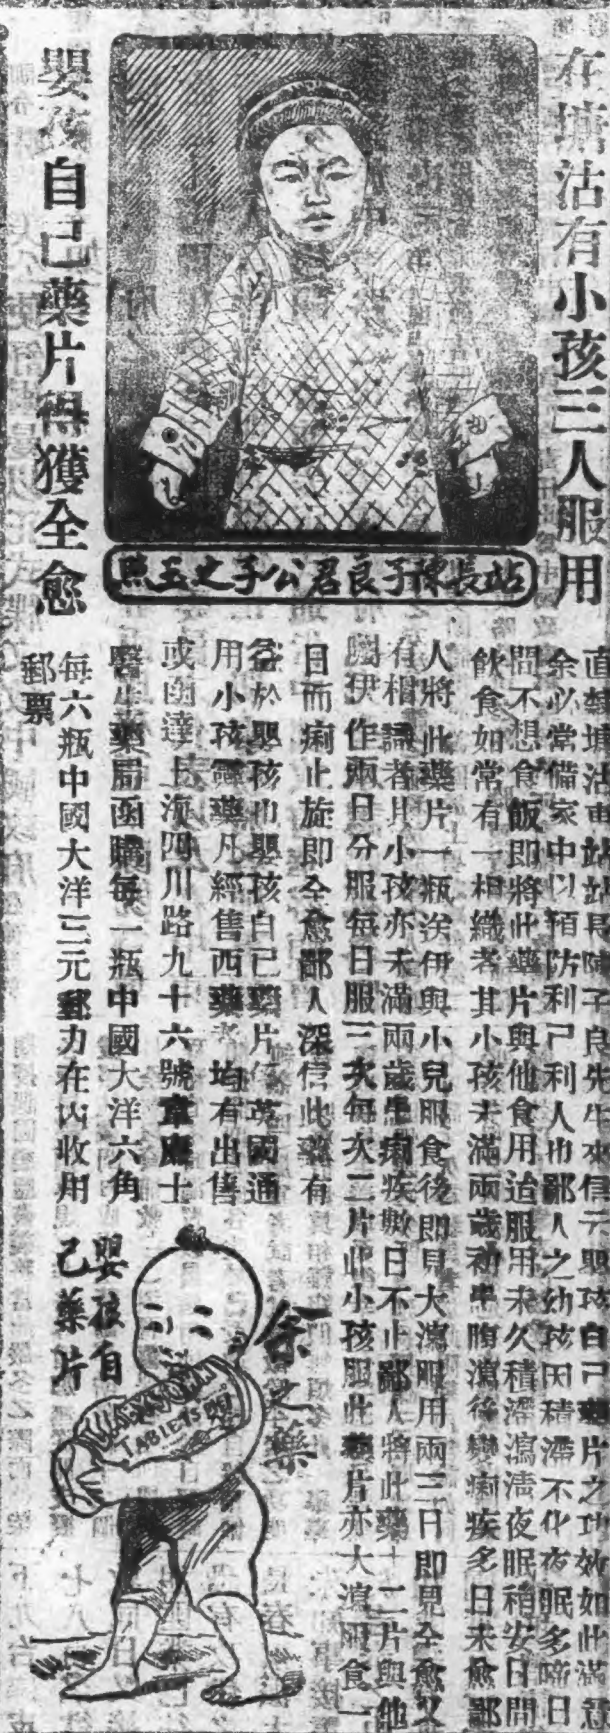 在塘沽有小孩三人服用
嬰孩自己藥片得獲全愈
站長陳子良君公子之玉照
直隸塘沽車站站長陳子良先生來信云嬰孩自己藥片之功效如此滿意
余必常備家中以預防利己利人也鄙人之幼孩因積滯不化夜眠多啼日
間不想食飯即將此藥片與他食用迨服用未久積滯瀉清夜眠稍安日間
飲食如常有一相織者其小孩未滿兩歲初患腹瀉後變痢疾多日未愈鄙
人將此藥片一瓶送伊與小兒服食後即見大瀉服用兩三日即見全愈又
有相識者其小孩亦未滿兩歲患痢疾數日不止鄙人將此藥十二片與他
囑伊作兩日分服每日服三次每次二片此小孩服此藥片亦大瀉兩食一
日而痢止旋即全愈鄙人深信此藥有
益於嬰孩也嬰孩自己藥片係英國通
用小孩靈藥凡經售西藥者均有出售
或函達上海四川路九十六號韋廉士
醫生藥局函購每一瓶中國大洋六角
每六瓶中國大洋三元郵力在內收用
郵票
余之藥
嬰孩自
己藥片
TABLETS